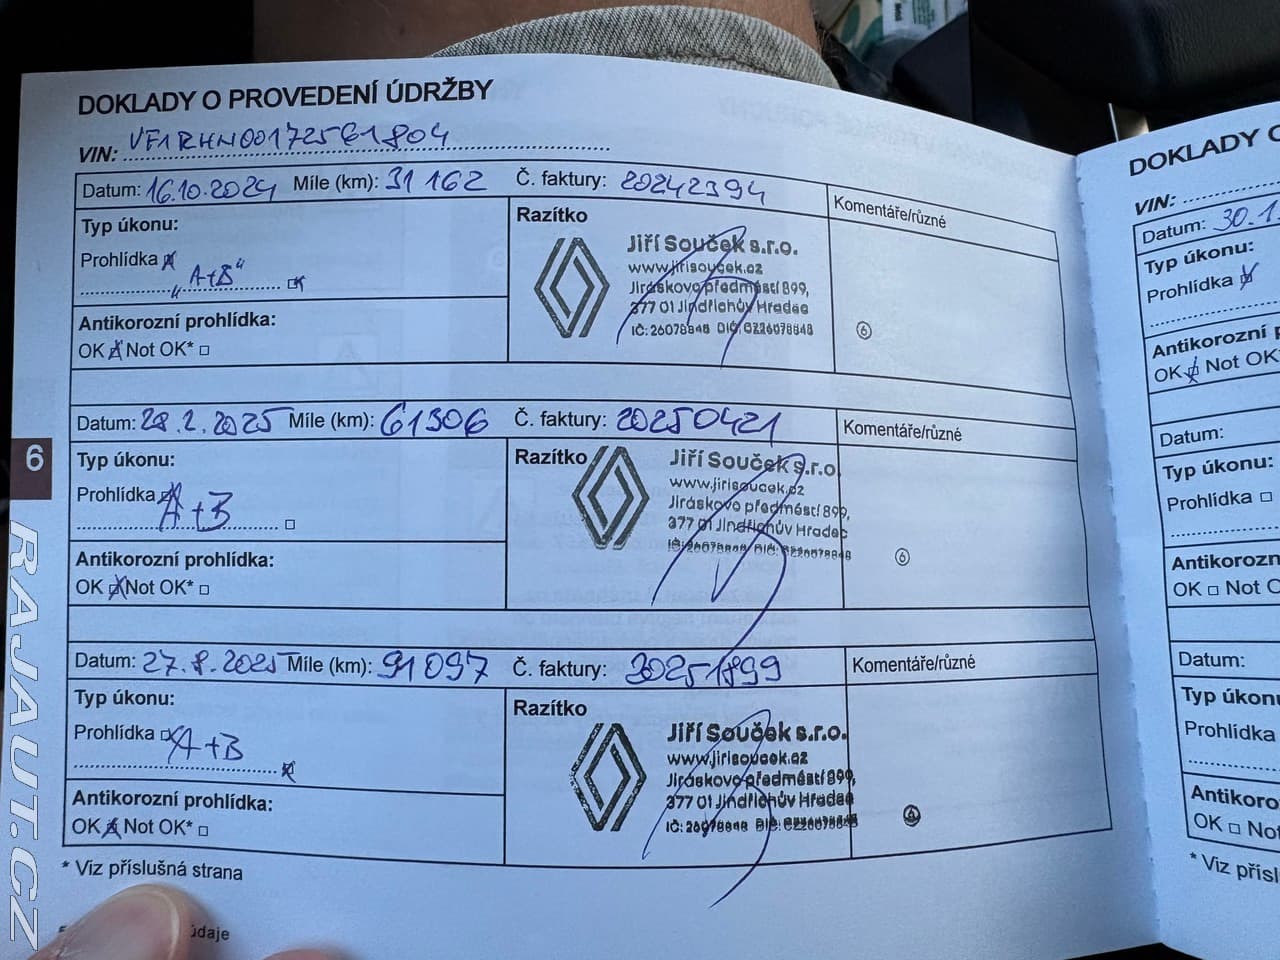 DOKLADY O PROVEDENÍ ÚDRŽBY
VIN: VF1RHN00172561804
Datum: 16.10.2024 Míle (km): 31 162 Č. faktury: 20242394
Komentáře/různé
Typ úkonu:
Prohlídka
"A+B"
Razítko
Jiří Souček s.r.o.
www.jirisoucek.cz
Jiráskovo předměstí 899,
377 01 Jindřichův Hradec
IČ: 26078848 DIČ: CZ26078848
6
Antikorozní prohlídka:
OK Not OK*
Datum: 28.2.2025 Míle (km): 61306 Č. faktury: 20250421
Komentáře/různé
Typ úkonu:
Prohlídka
A+B
Razítko
Jiří Souček s.r.o.
www.jirisoucek.cz
Jiráskovo předměstí 899,
377 01 Jindřichův Hradec
IČ: 26078848 DIČ: CZ26078848
6
Antikorozní prohlídka:
OK Not OK*
Datum: 27.8.2025 Míle (km): 91097 Č. faktury: 20251899
Komentáře/různé
Typ úkonu:
Prohlídka
A+B
Razítko
Jiří Souček s.r.o.
www.jirisoucek.cz
Jiráskovo předměstí 899,
377 01 Jindřichův Hradec
IČ: 26078848 DIČ: CZ26078848
6
Antikorozní prohlídka:
OK Not OK*
* Viz příslušná strana
6
RAJAUT.CZ
DOKLADY
VIN:
Datum: 30.1
Typ úkonu:
Prohlídka
Antikorozní
OK Not OK*
Datum:
Typ úkonu:
Prohlídka
OK Not
Datum:
Typ
Prohlídka
OK Not
* Viz